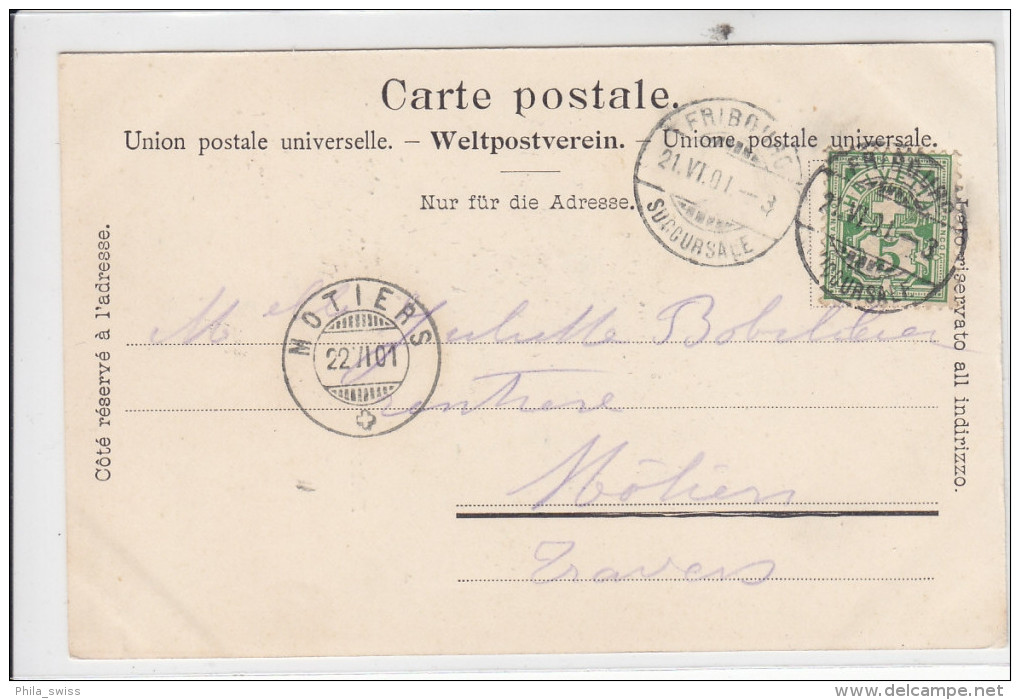 Carte postale.
Union postale universelle. – Weltpostverein. – Unione postale universale.
Nur für die Adresse.
Côté réservé à l'adresse.
Lato riservato all indirizzo.
FRIBOURG
21.VI.01.–3
SUCCURSALE
FRIBOURG
21.VI.01.–3
SUCCURSALE
5
MOTIERS
22 VI 01
Juliette
Môtiers
Travers
Phila_swiss
www.delcampe.net